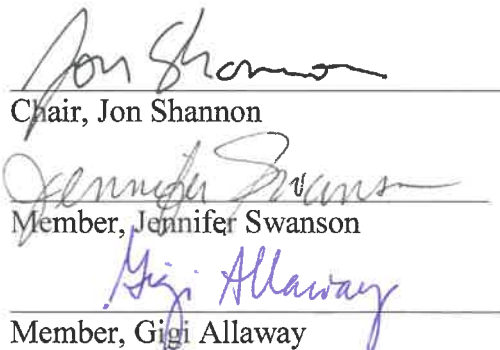 Jon Shannon
Chair, Jon Shannon
Jennifer Swanson
Member, Jennifer Swanson
Gigi Allaway
Member, Gigi Allaway